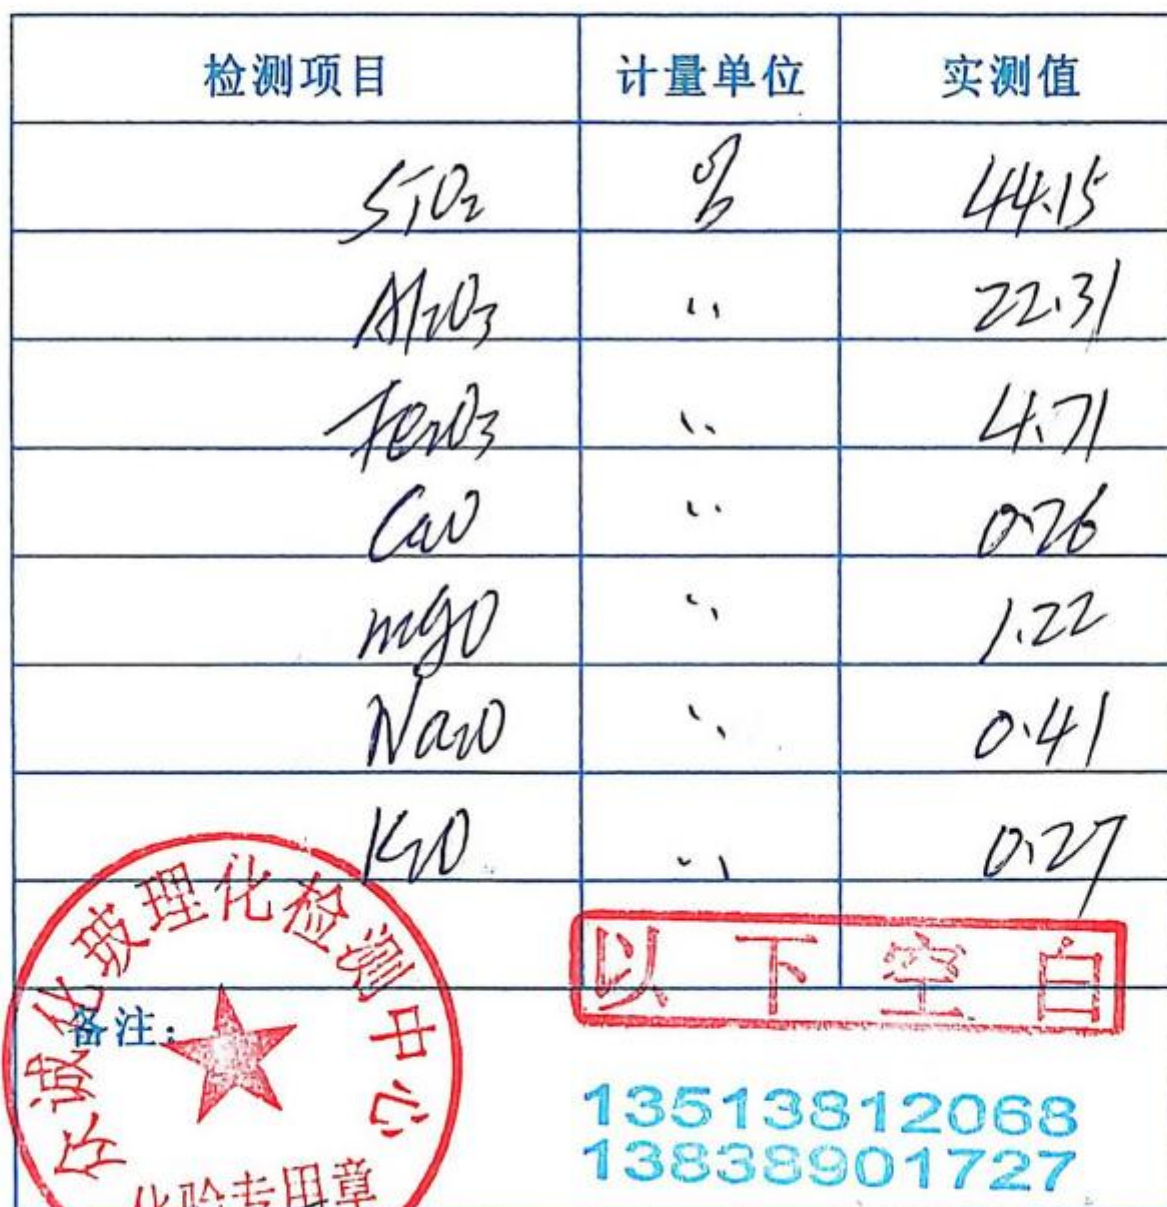 检测项目 计量单位 实测值
SiO2 % 44.15
Al2O3 〃 22.31
Fe2O3 〃 4.71
CaO 〃 0.26
mgO 〃 1.22
Na2O 〃 0.41
K2O 〃 0.27
以下空白
备注:
诚化玻理化检测中心
化验专用章
13513812068
13838901727